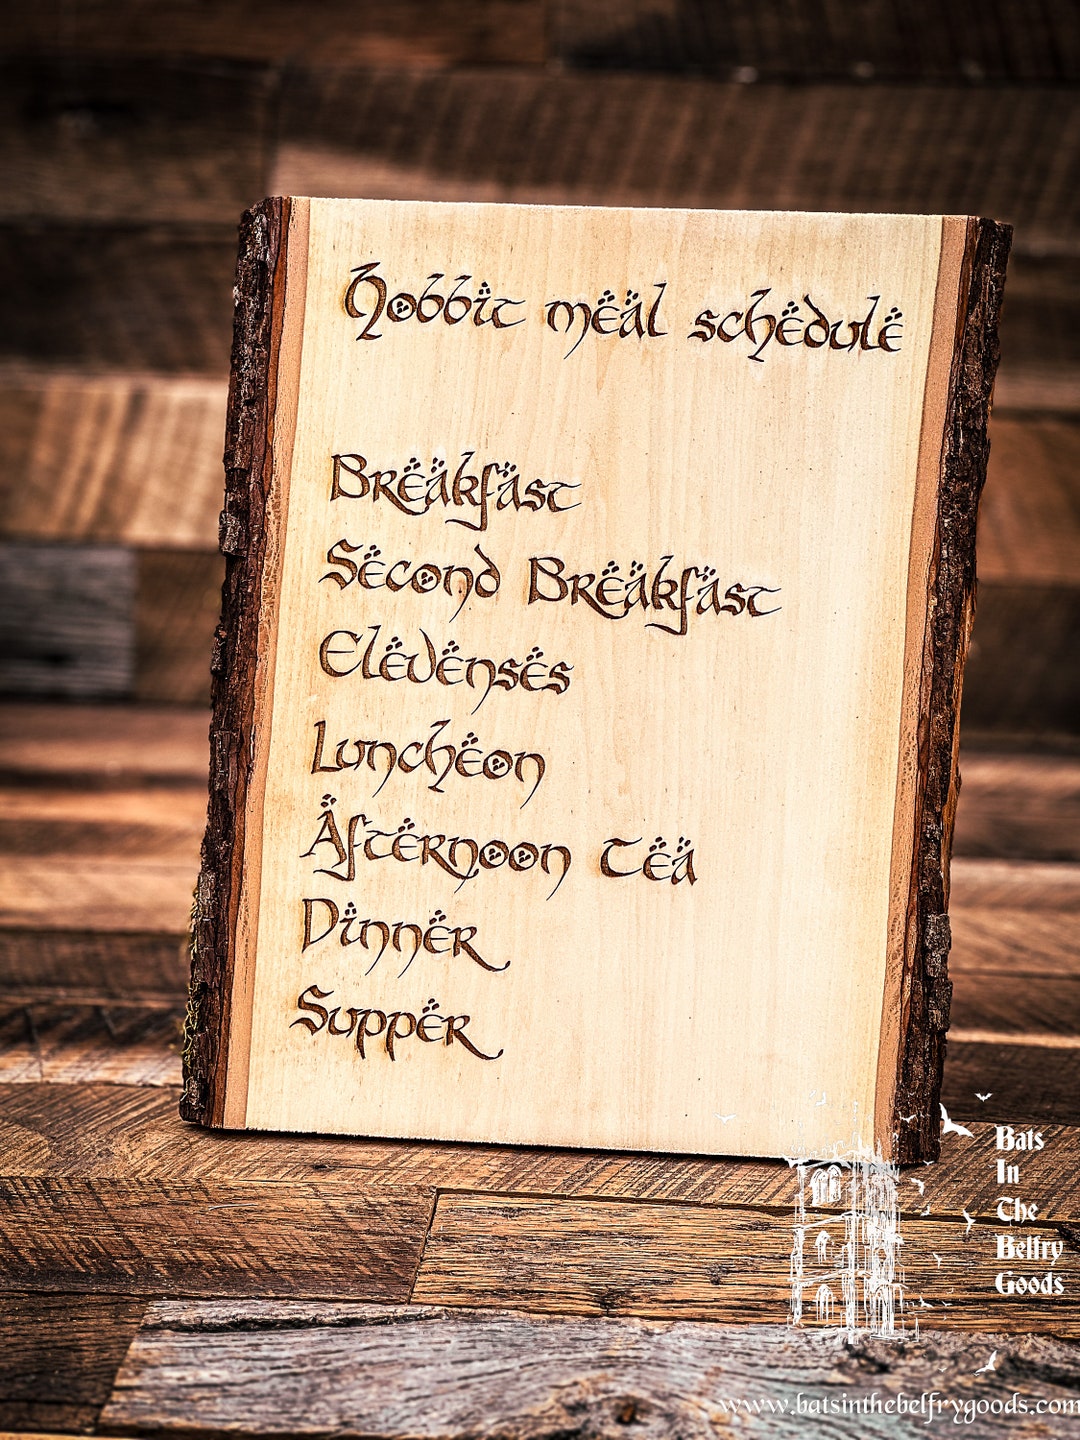 Hobbit meal schedule
Breakfast
Second Breakfast
Elevenses
Luncheon
Afternoon Tea
Dinner
Supper
Bats
In
The
Belfry
Goods
www.batsinthebelfrygoods.com